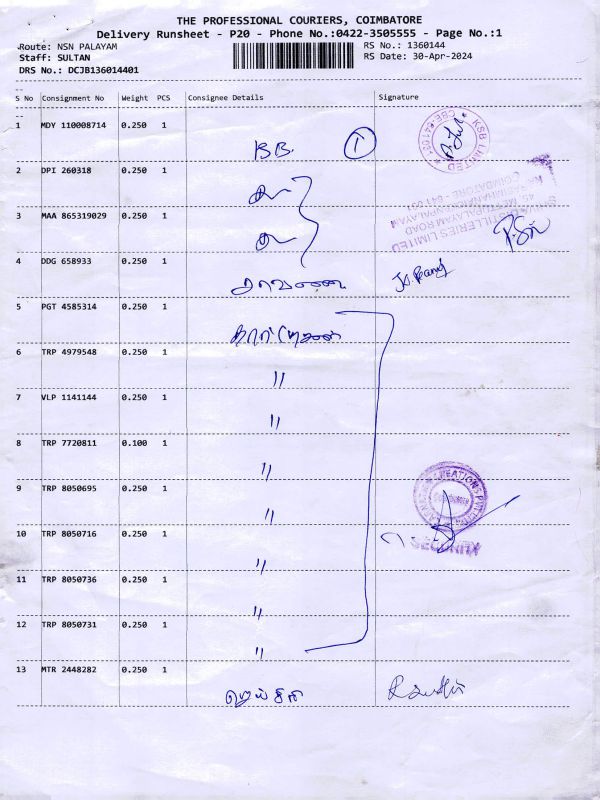 THE PROFESSIONAL COURIERS, COIMBATORE
Delivery Runsheet - P20 - Phone No.:0422-3505555 - Page No.:1
Route: NSN PALAYAM
RS No.: 1360144
Staff: SULTAN
RS Date: 30-Apr-2024
DRS No.: DCJB136014401
S No Consignment No Weight PCS Consignee Details Signature
1 MDY 110008714 0.250 1 B.B. 1
KSB LIMITED
2 DPI 260318 0.250 1
3 MAA 865319029 0.250 1
DISTILLERIES LIMITED
4 DDG 658933 0.250 1 சரவணன்
5 PGT 4585314 0.250 1
6 TRP 4979548 0.250 1 "
7 VLP 1141144 0.250 1 "
8 TRP 7720811 0.100 1 "
9 TRP 8050695 0.250 1 "
10 TRP 8050716 0.250 1 "
SECURITY
11 TRP 8050736 0.250 1 "
12 TRP 8050731 0.250 1 "
13 MTR 2448282 0.250 1